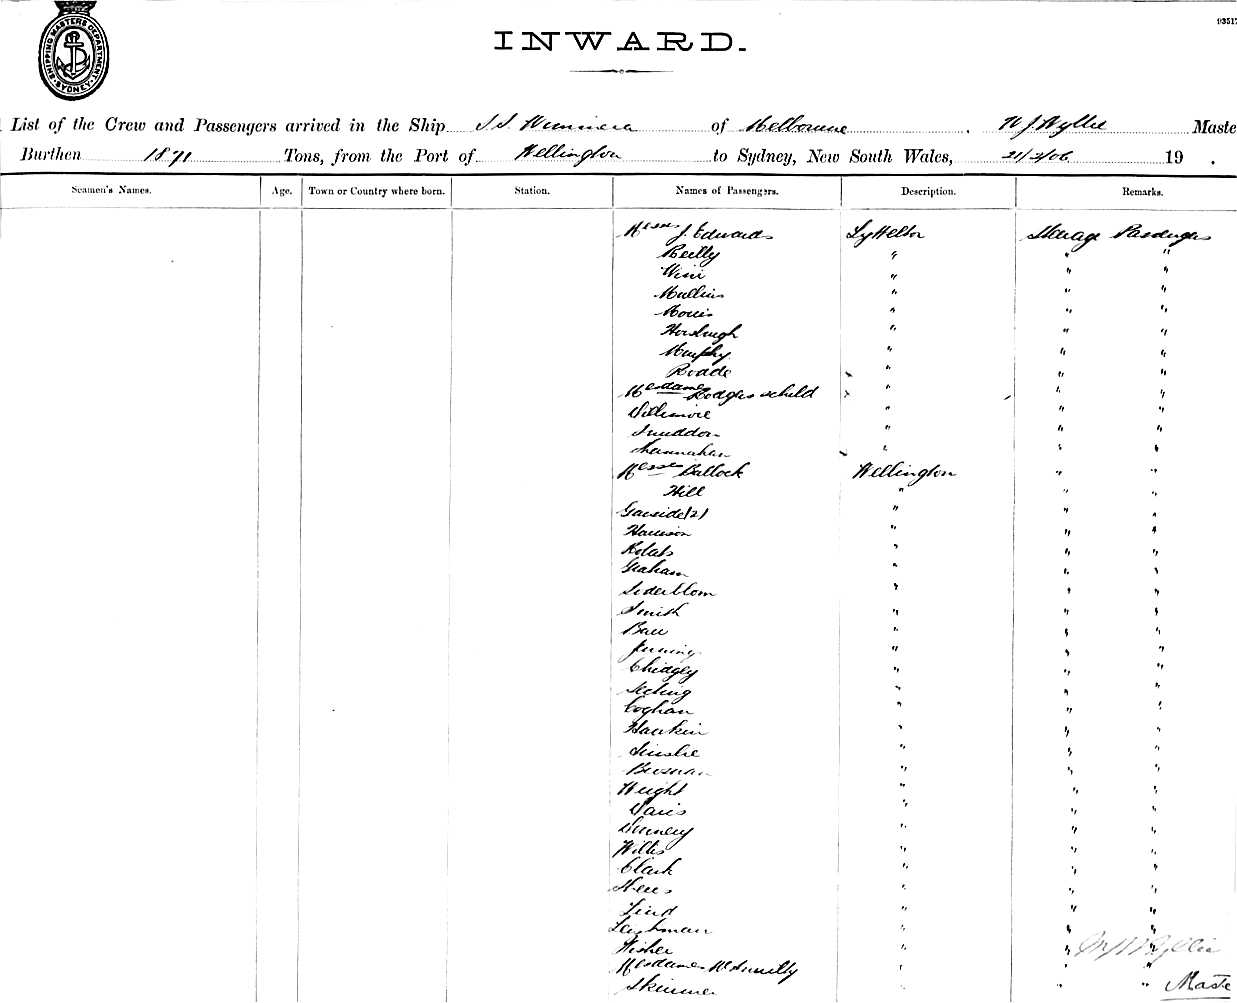 SHIPPING MASTERS DEPARTMENT SYDNEY
INWARD.
List of the Crew and Passengers arrived in the Ship S.S. Wimmera of Melbourne, W J Wyllie Maste
Burthen 1871 Tons, from the Port of Wellington to Sydney, New South Wales, 21/2/06 19 .
Seamen's Names. Age. Town or Country where born. Station. Names of Passengers. Description. Remarks.
Messrs J. Edwards Lyttelton Steerage Passengers
Reilly " " "
Weir " " "
Mullins " " "
Morris " " "
" " "
Murphy " " "
Rodde " " "
Mesdames Rodgers & child " " "
" " "
Sneddon " " "
Shannahan " " "
Messrs Ballock Wellington " "
Hill " " "
Garside (2) " " "
Harrison " " "
" " "
Graham " " "
Soderblom " " "
Smith " " "
" " "
" " "
Chidgley " " "
" " "
Coghan " " "
Hawkin " " "
" " "
Brosnan " " "
Wright " " "
Davis " " "
" " "
Willis " " "
Clark " " "
" " "
Lind " " "
Leishman " " "
Fisher " " " W J Wyllie
Mesdames McAnulty " " "
Skinner " " " Maste